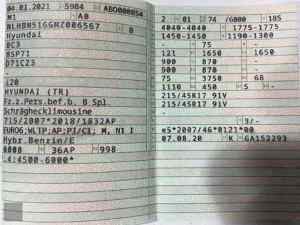 04.01.2021 5984 ABO000054
M1 AB
NLHBN516GMZ006567 0
Hyundai
BC3
B5P71
D71CZ3
-
i20
HYUNDAI (TR)
Fz.z.Pers.bef.b. 8 Spl
Schräghecklimousine
715/2007*2018/1832AP
EURO6;WLTP;AP;PI/CI; M, N1 I
Hybr.Benzin/E
0008 36AP 998
L4:4500-6000*
2 01 74 /6000 185
4040-4040 1775-1775
1450-1450 1190-1300
- 75 -
121 1650 1650
900 870 -
900 870 -
75 3750 68
1110 450 5 -
215/45R17 91V
215/45R17 91V
-
9/-
e5*2007/46*0121*00
07.08.20 K GA153293